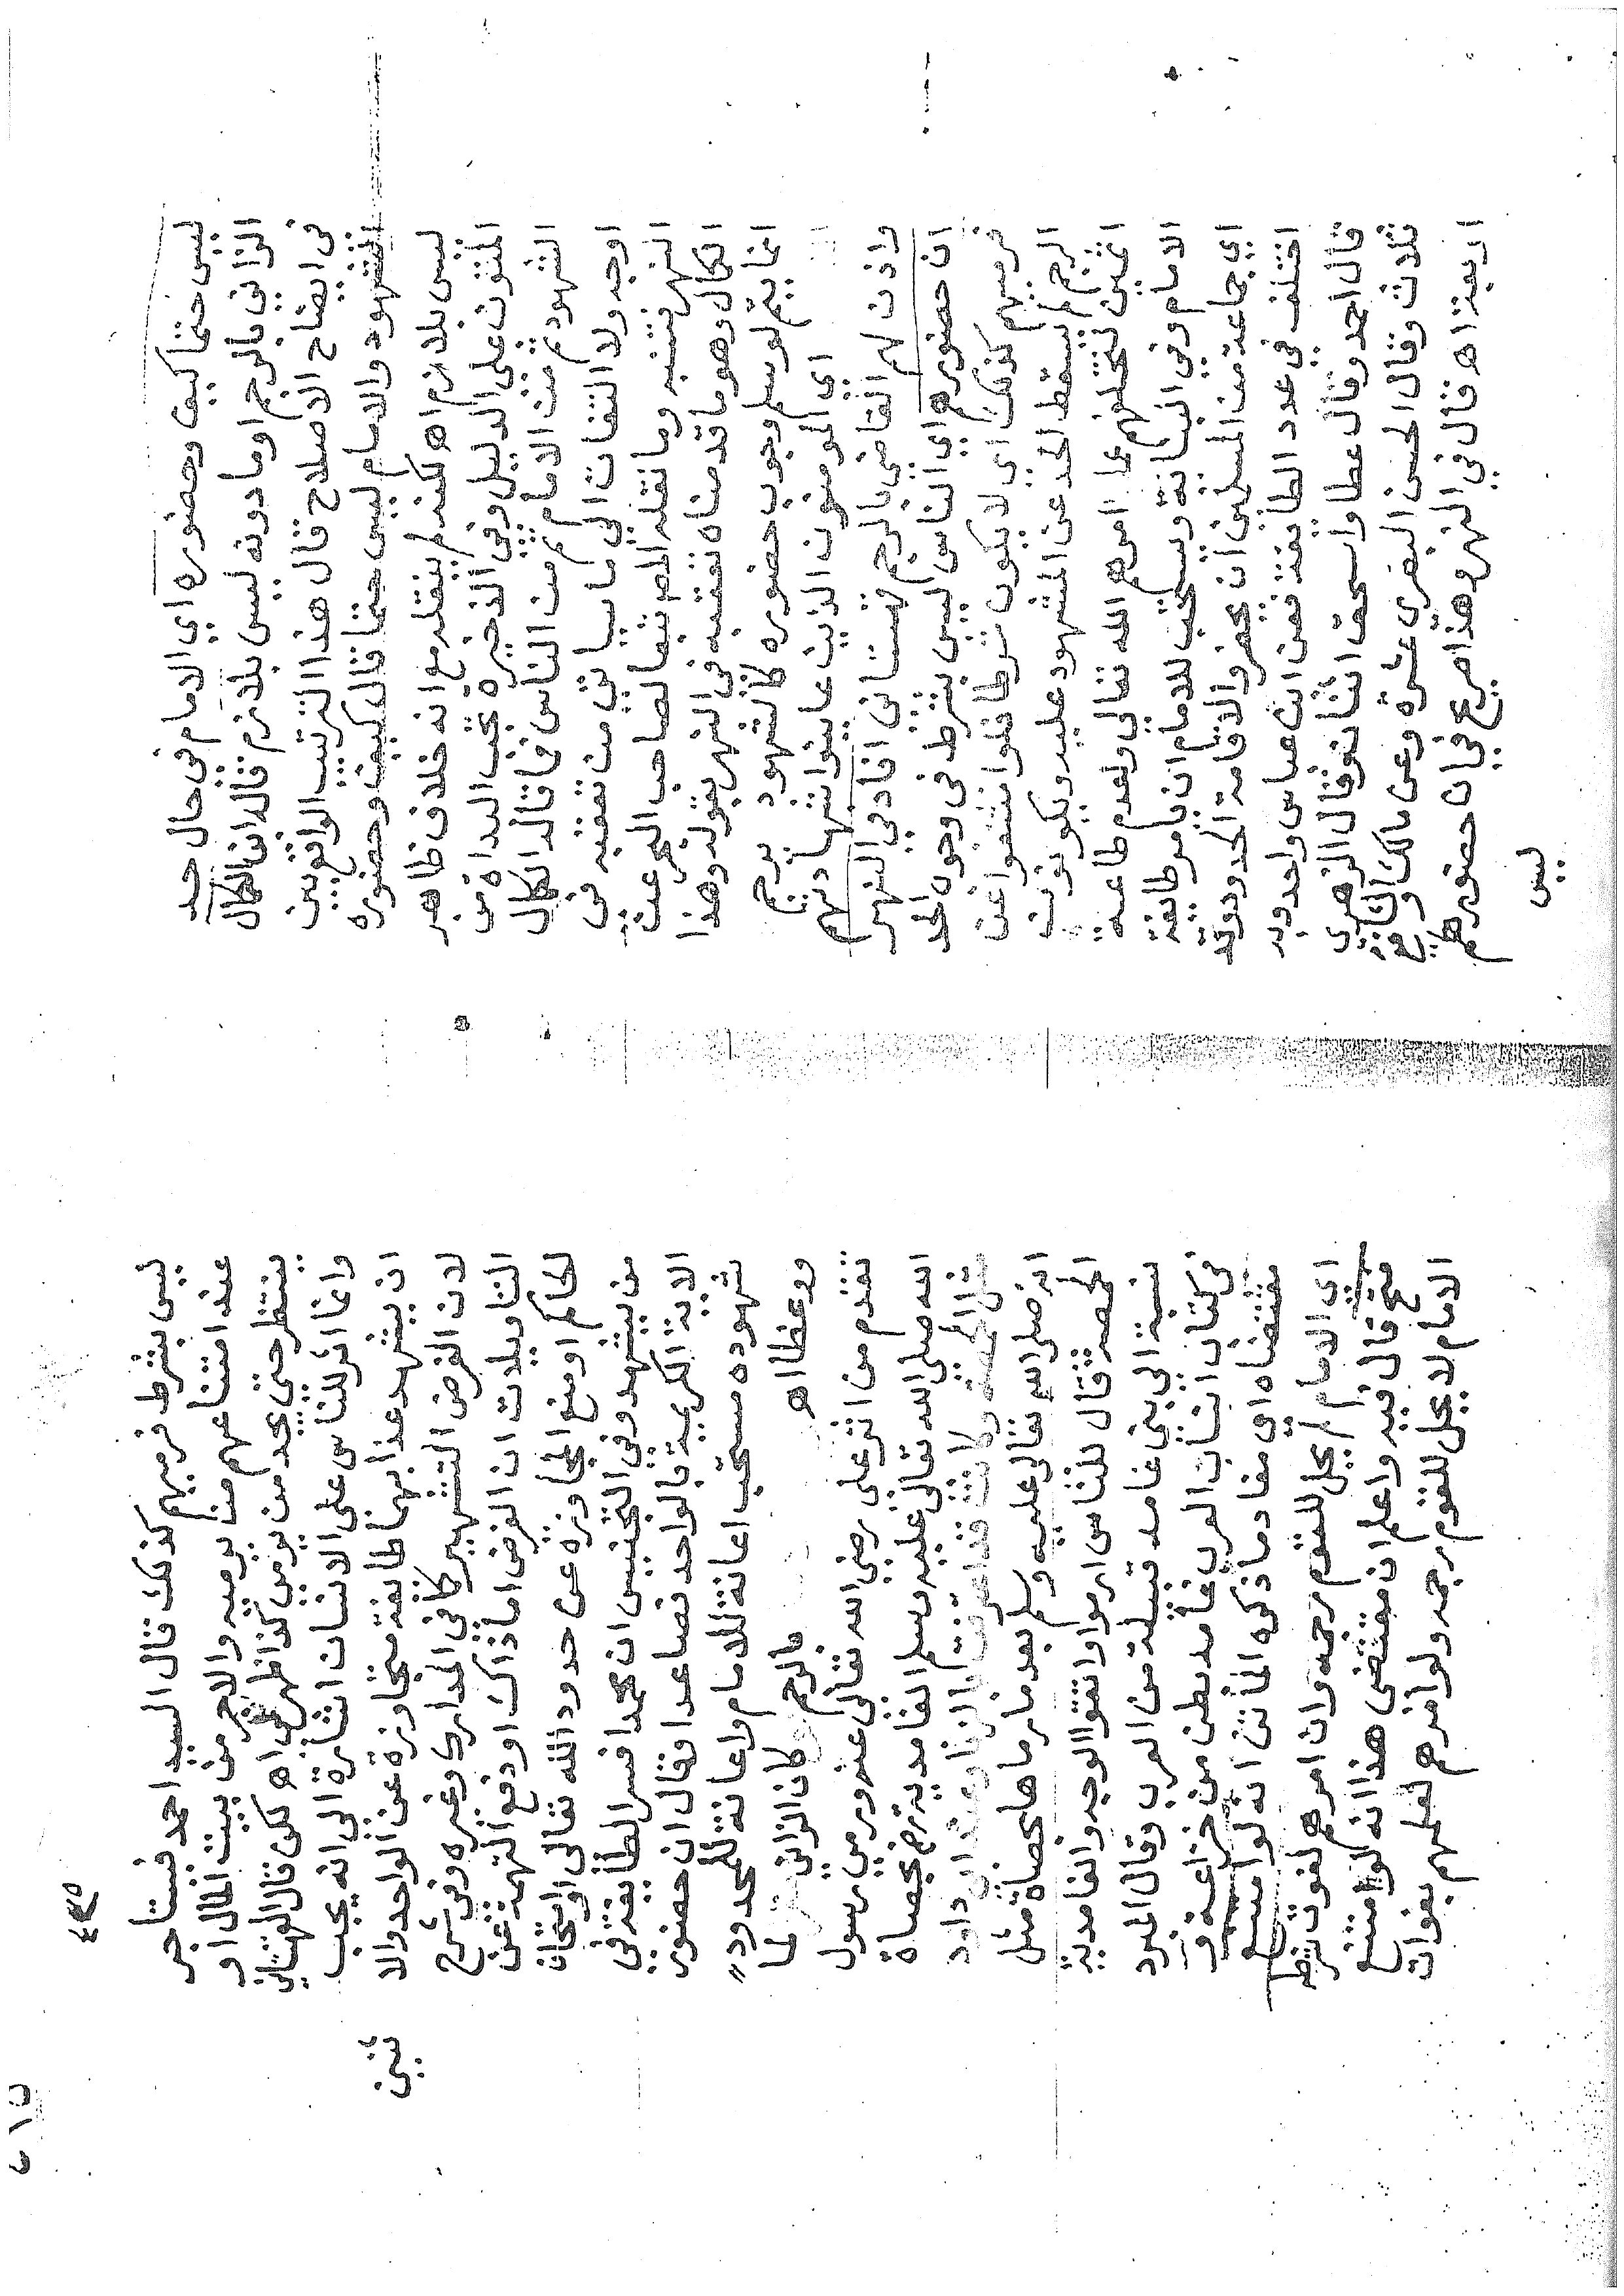 ليس حتما كيف وحضوره اي الامام في حال حد
الزاني بالرجم او ما دونه ليس بلازم قاله ابن الكمال
في ايضاح الاصلاح قال هذا الترتيب الواقع بين
الشهود والامام ليس حتما قال كيف وحضوره
ليس بلازم اه لكنه لم ينقله مع انه خلاف ظاهر
المتون على الدليل وفي الذخيرة يجب البداة من
الشهود ثم من الامام ثم من الناس فما قاله الكمال
اوجه ولا التفات الى ما سياتي من تعقبه في
النهر تنبيه وما نقله المص تبعا لصاحب البحر عن
الكمال وهو ما قدمناه تعقبه في النهر بقوله وهذا
انما يتم لو سلم وجوب حضوره كالشهود يرجم
اي المومنون الذين عاينوا شهادتهم
واذن لهم القاضي بالرجم قهستاني افاد في النهر
ان حضورهم اي الناس ليس بشرط في وجوه الحد
فرميهم كذلك اي لا يكون شرطا فلو امتنعوا عن
الرجم لم يسقط الحد عن المشهود عليه ويكونون
اثمين لتخلفهم عما امرهم الله تعالى ولعدم طاعة
الامام وفي التبيانة ويستحب للامام ان يامر طائفة
اي جماعة من المسلمين ان يحضروا لاقامة الحدود وقد
اختلف في عدد الطايفة فعن ابن عباس واحد وبه
قال احمد وقال عطا واسحق اثنان وقال الزهري
ثلاث وقال الحسن البصري عشرة وعن مالك والشافعي
اربعة اه قال في النهر وهذا صريح في ان حضورهم
ليس
٤٣٥
ليس بشرط فرميهم كذلك قال السيد احمد فيستاجر
عند امتناعهم من يرميه والاجر من بيت المال او
ينتظر حتى يجد من يرمي كذا ظهر لي اه لكن قال القهستاني
وانما اثر للناس على الانسان اشارة الى انه يجب
ان يشهد عذابهما طائفة متجاوزة عن الواحد والا
لان الغرض التشهير كما في المدارك وغيره وفي شرح
التاويلات ان الغرض اما ذاك او دفع التهمة عن
الحاكم او منع المجاوزة عن حدود الله تعالى او امتحان
من يشهد وفي التجنيس ان محمدا فسر الطائفة في
الاية الكريمة بالواحد فصاعدا فقال ان حضور
شهوده مستحب اعانة للامام واعانة للمحدود
ووعظا اه بالرجم وكان الزاني لما
تقدم من اثر علي رضي الله تعالى عنه ورمي رسول
الله صلى الله تعالى عليه وسلم الغامدية ثم بحصاة
مثل الحمصة وكانت قد اعترفت بالزنا وعند ابي داود
انه صلى الله تعالى عليه وسلم بعد ما رماها بحصاة مثل
الحمصة قال للناس ارموا واتقوا الوجه والغامدية
نسبة الى بني غامد قبيلة من العرب وقال المبرد
في كتاب انساب العرب غامد بطن من خزاعة ف
مقتضاه اي مفاد ما ذكره الماتن انه لو امتنع
اي الامام لم يحل للقوم رجمه وان امرهم لفوت شرطه
فتح قال فيه واعلم ان مقتضى هذا انه لو امتنع
الامام لا يحل للقوم رجمه ولو امرهم لعلمهم بفوات